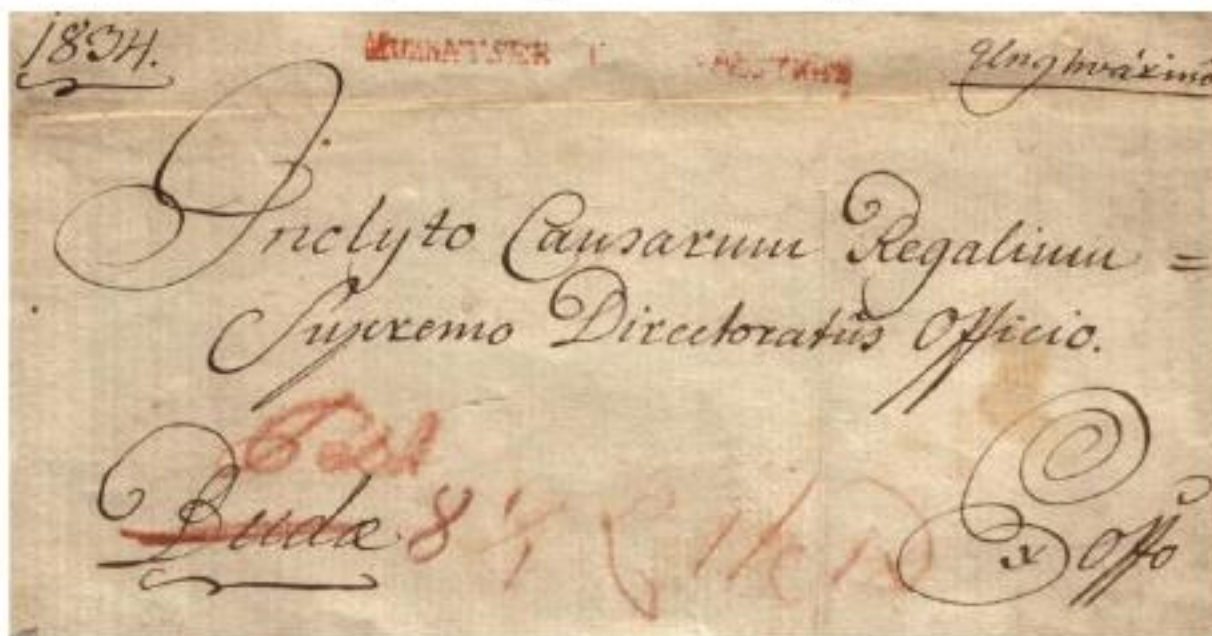 1834.
Unghvárinó
Inclyto Causarum Regalium =
Supremo Directoratûs Officio.
Pest
Budæ
8
Ex Offo